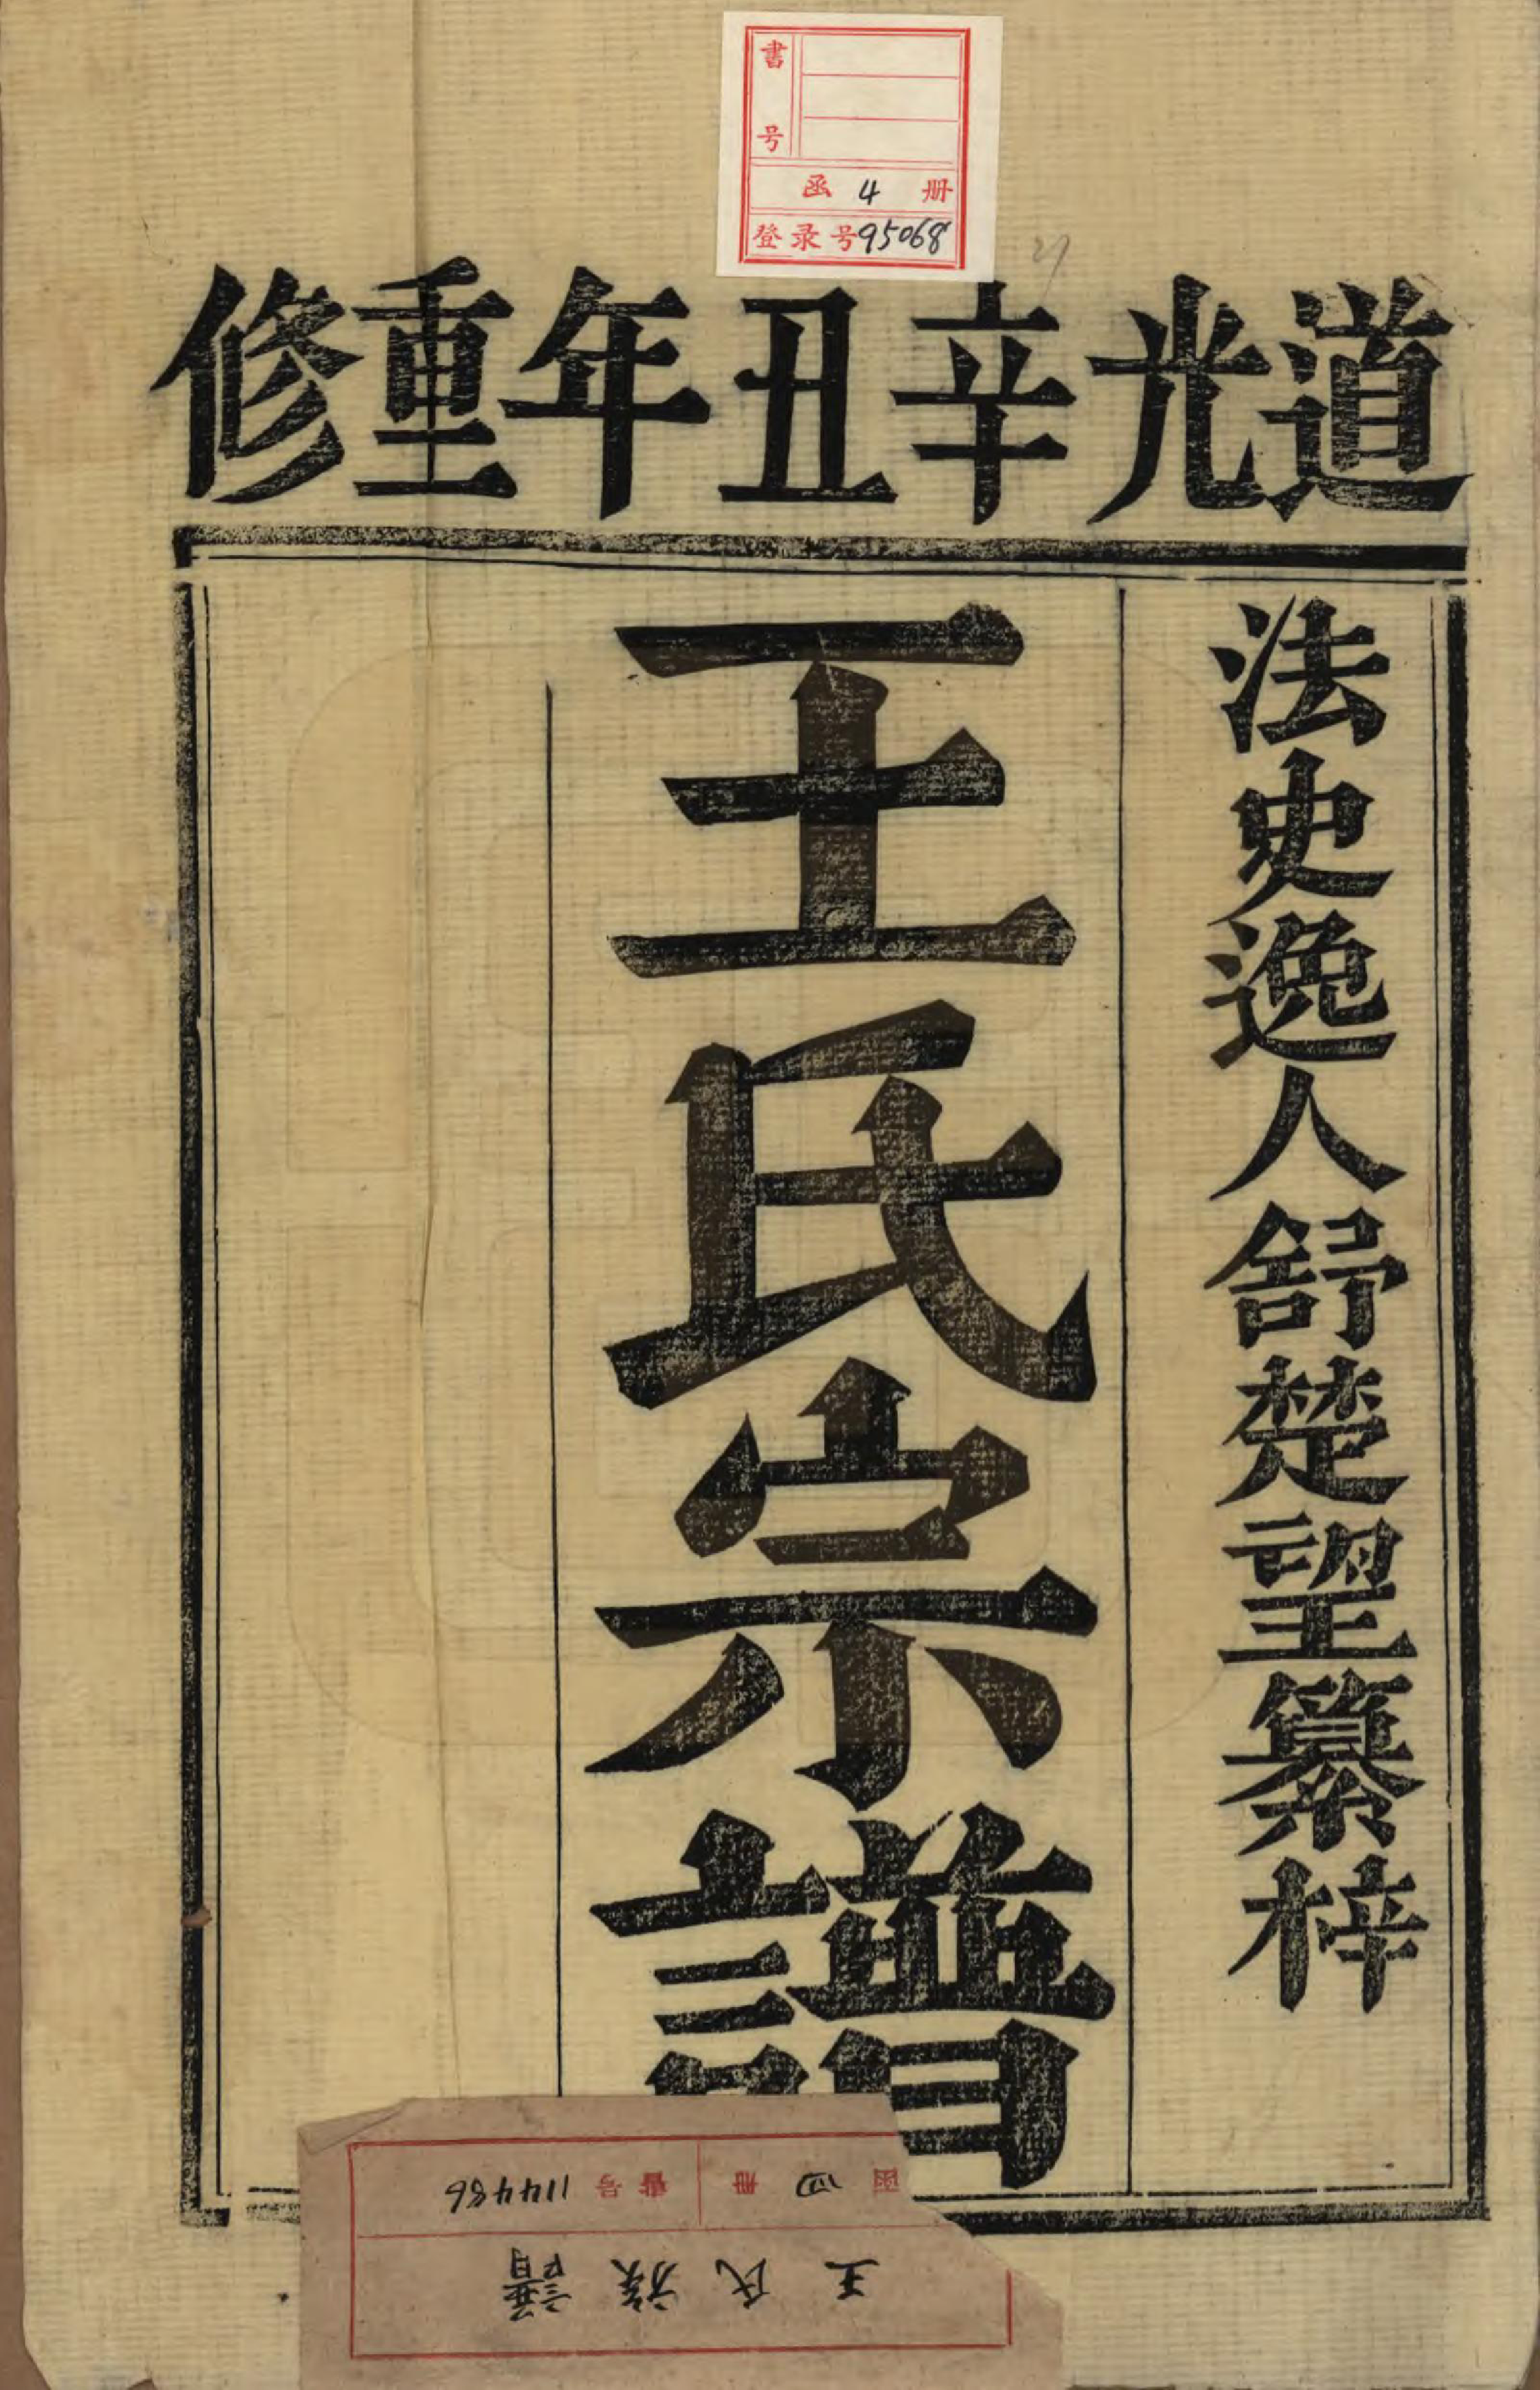 書号
函 4 册
登录号95068
道光辛丑年重修
法史逸人舒楚望纂梓
王氏宗譜
函 四 册 書号 114486
王氏族譜